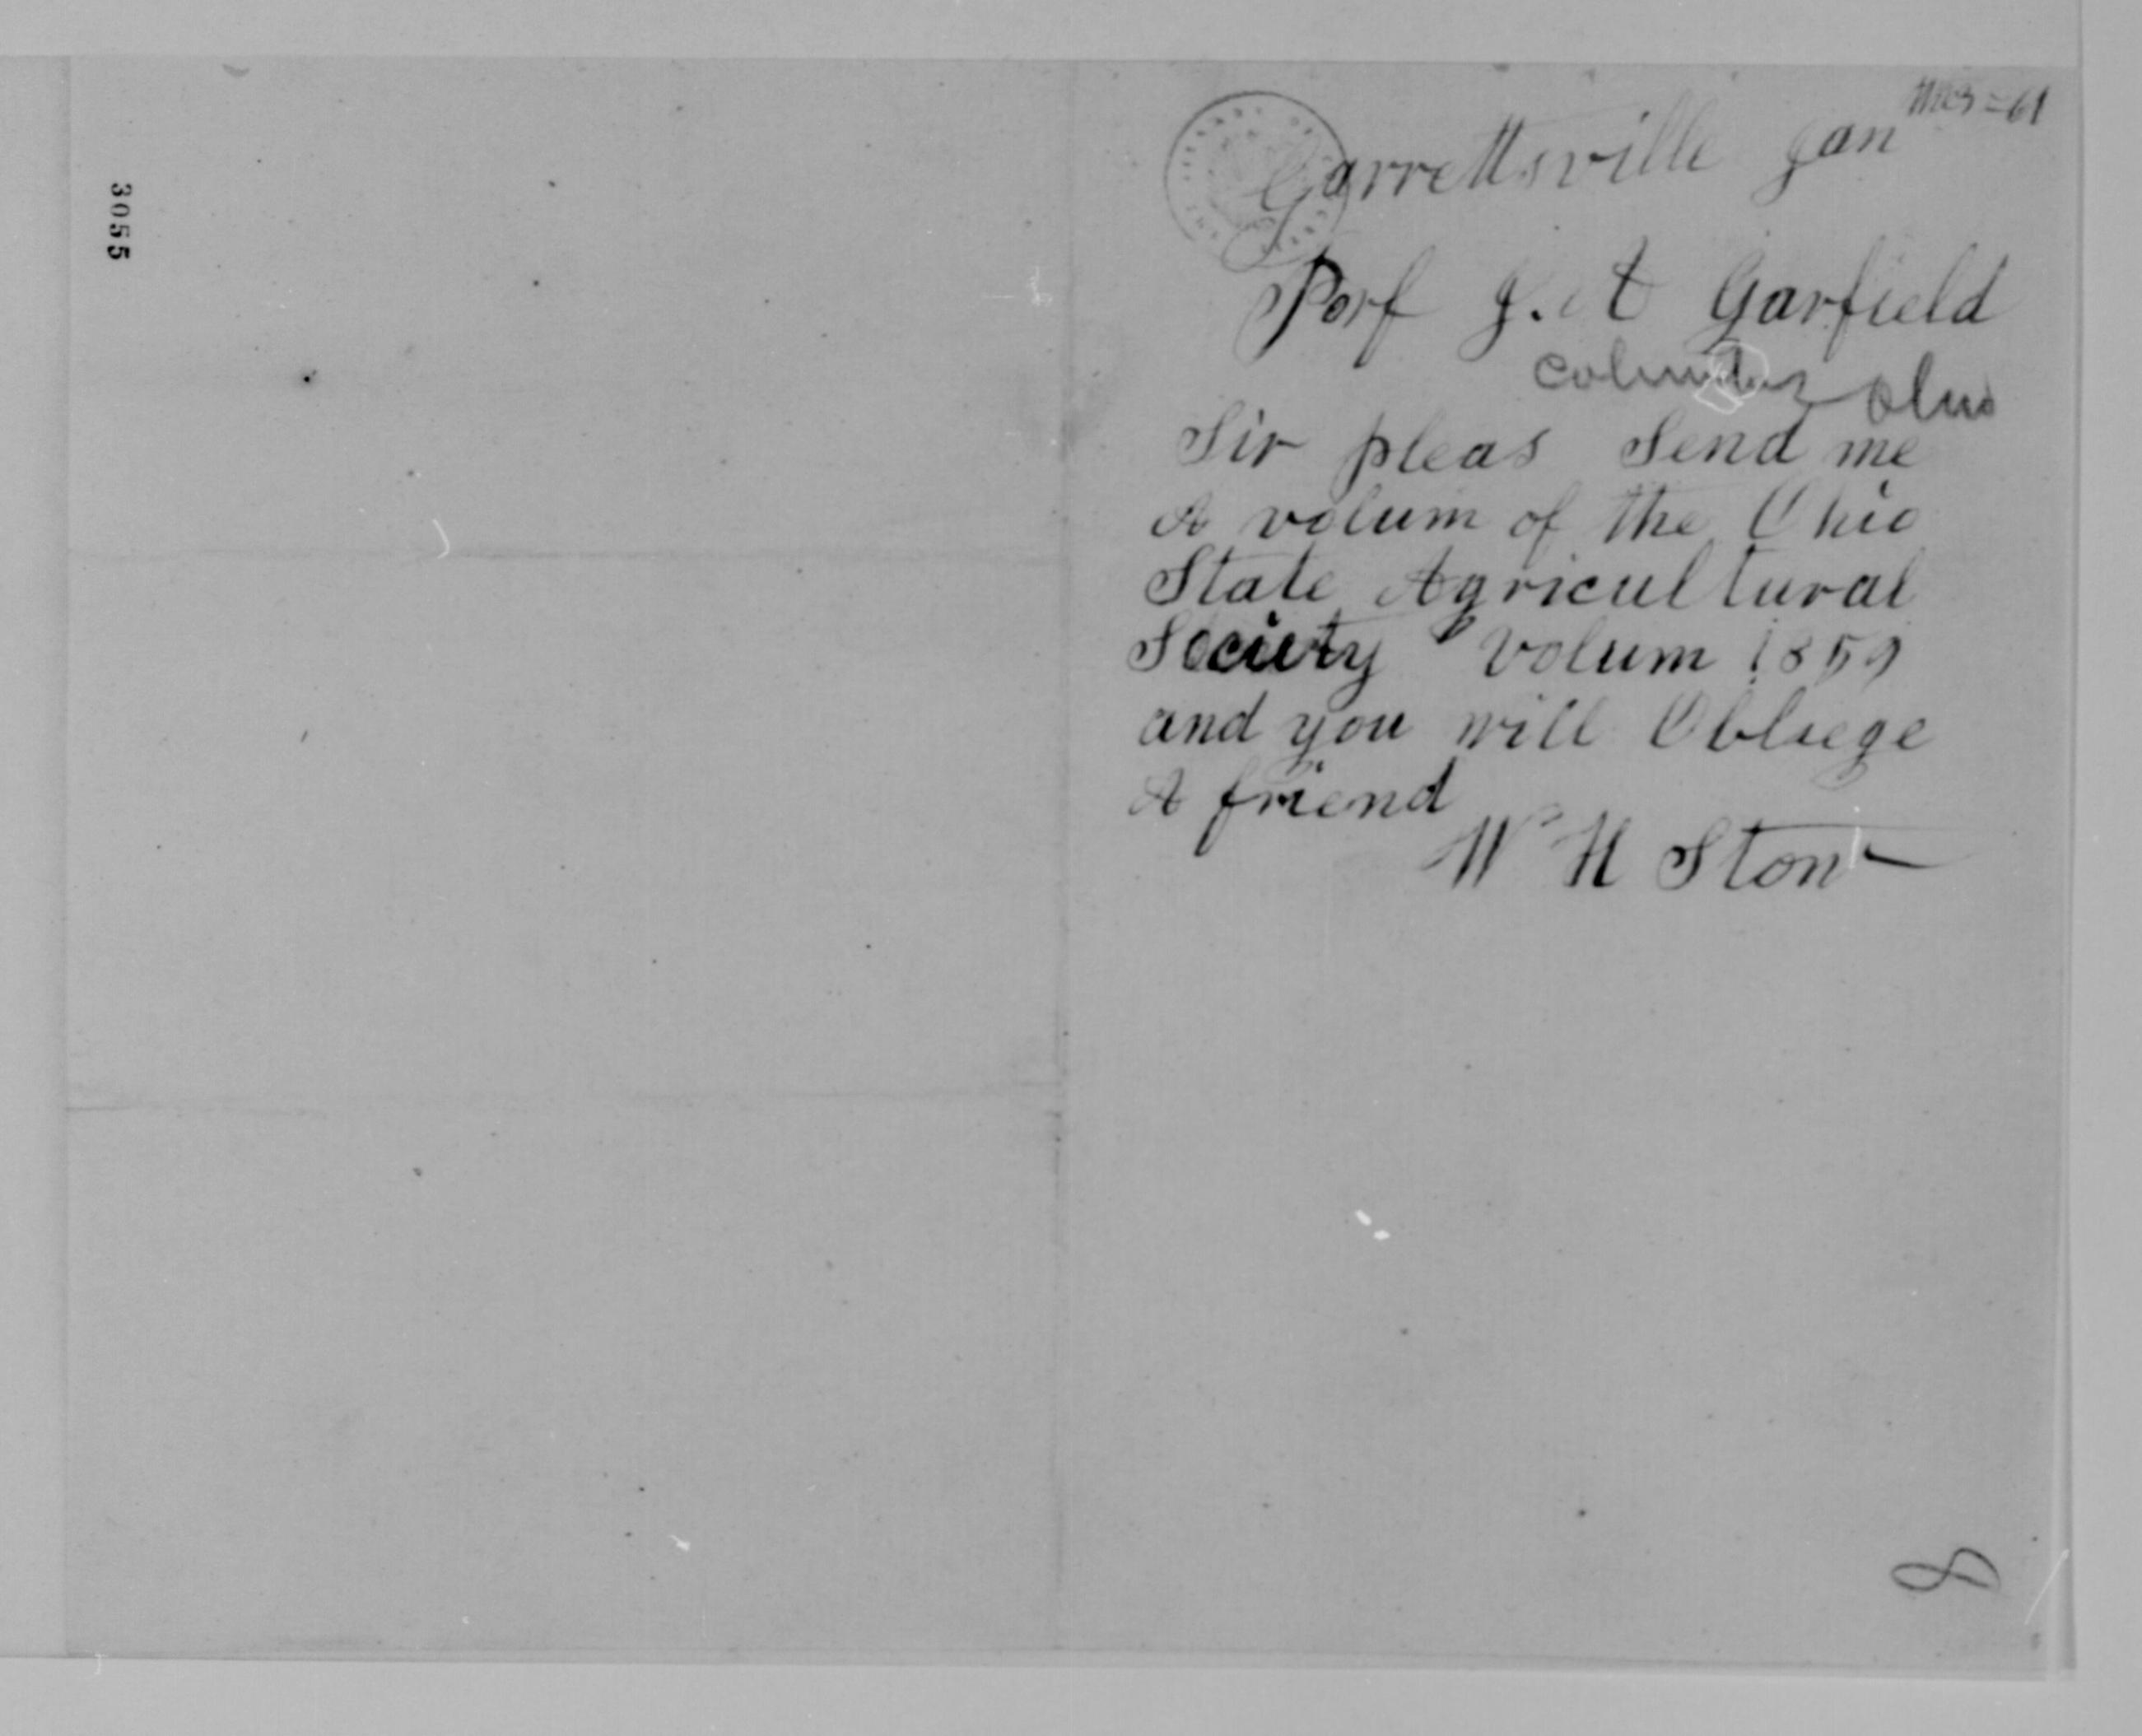 Garrettsville Jan
Porf J. A Garfield
Columbus Ohio
Sir pleas Send me
A volum of the Ohio
State Agricultural
Society Volum 1859
and you will Obliege
A friend
W H Stone
3055
8